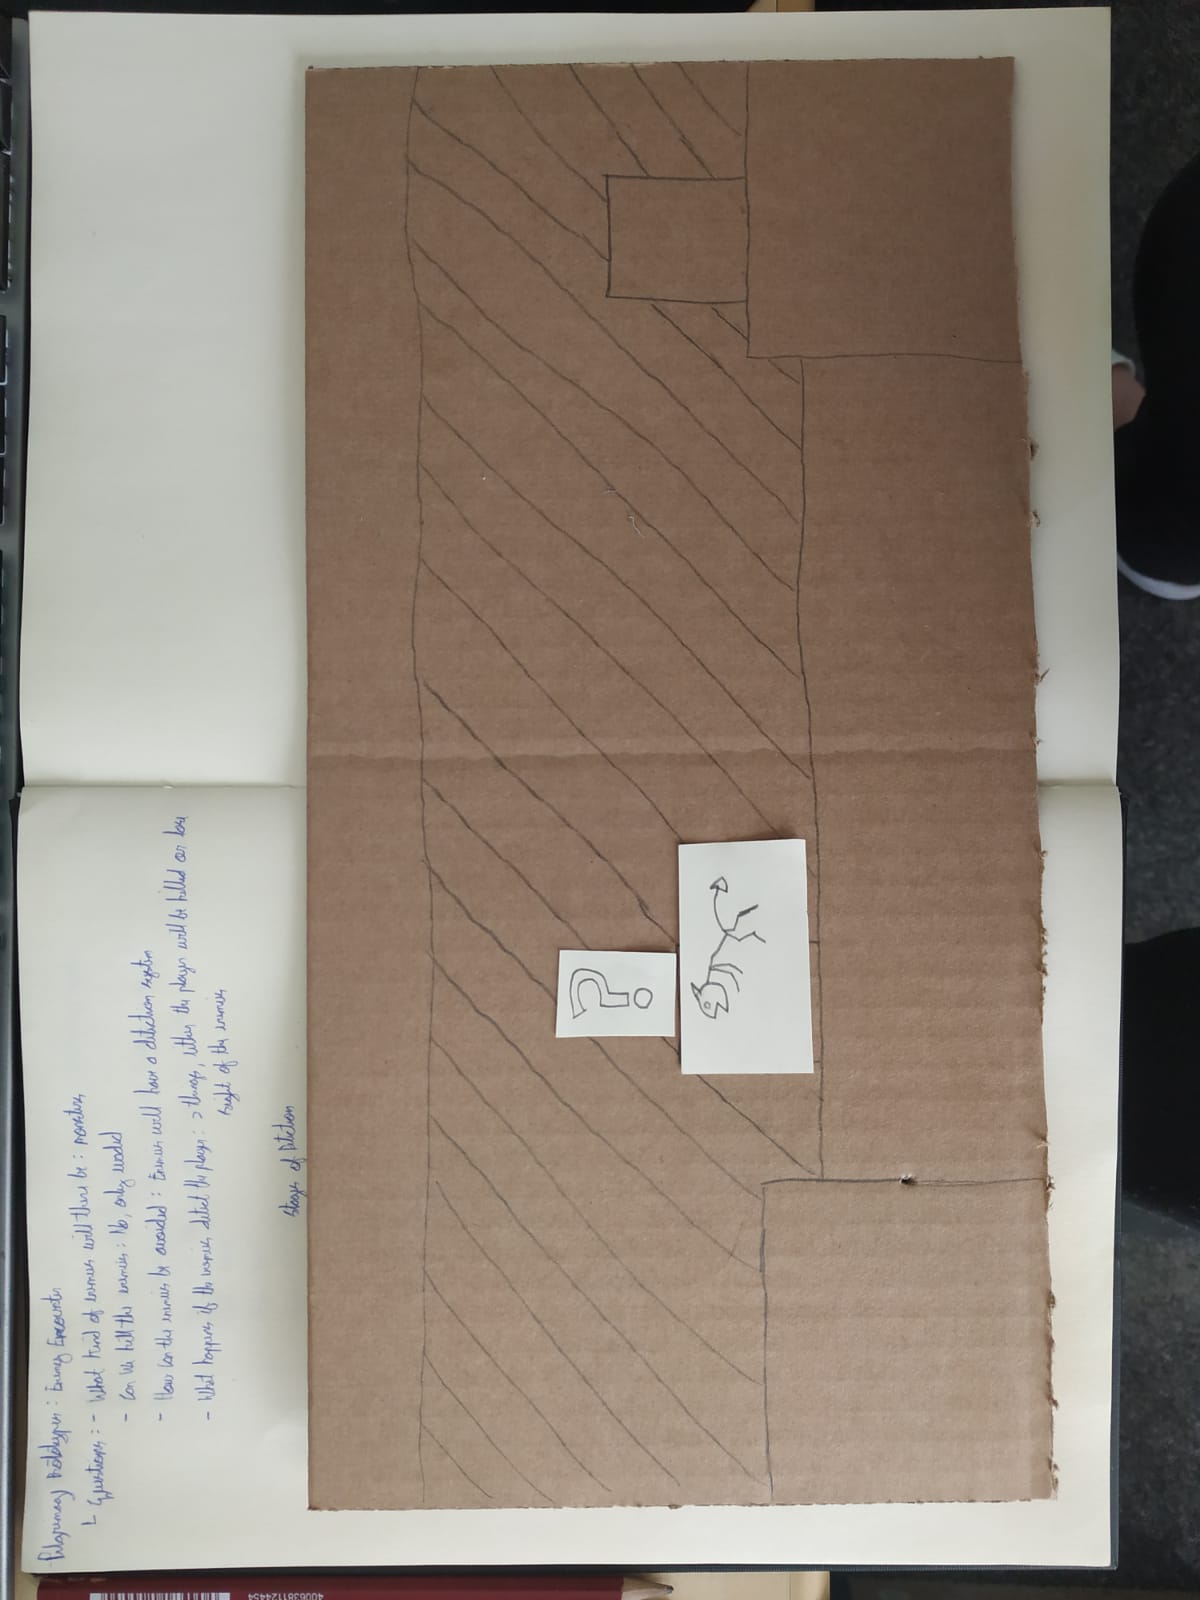 Pilgrimay Prototypes : Enemy Encounter
L Questions : - What kind of enemies will there be : monsters
- Can we kill the enemies : No, only evaded
- How can the enemies be avoided : Enemies will have a detection system
- What happens if the enemies detect the player : 2 things, either the player will be killed or lose
sight of the enemies
Stages of Detection
?
4006381124454